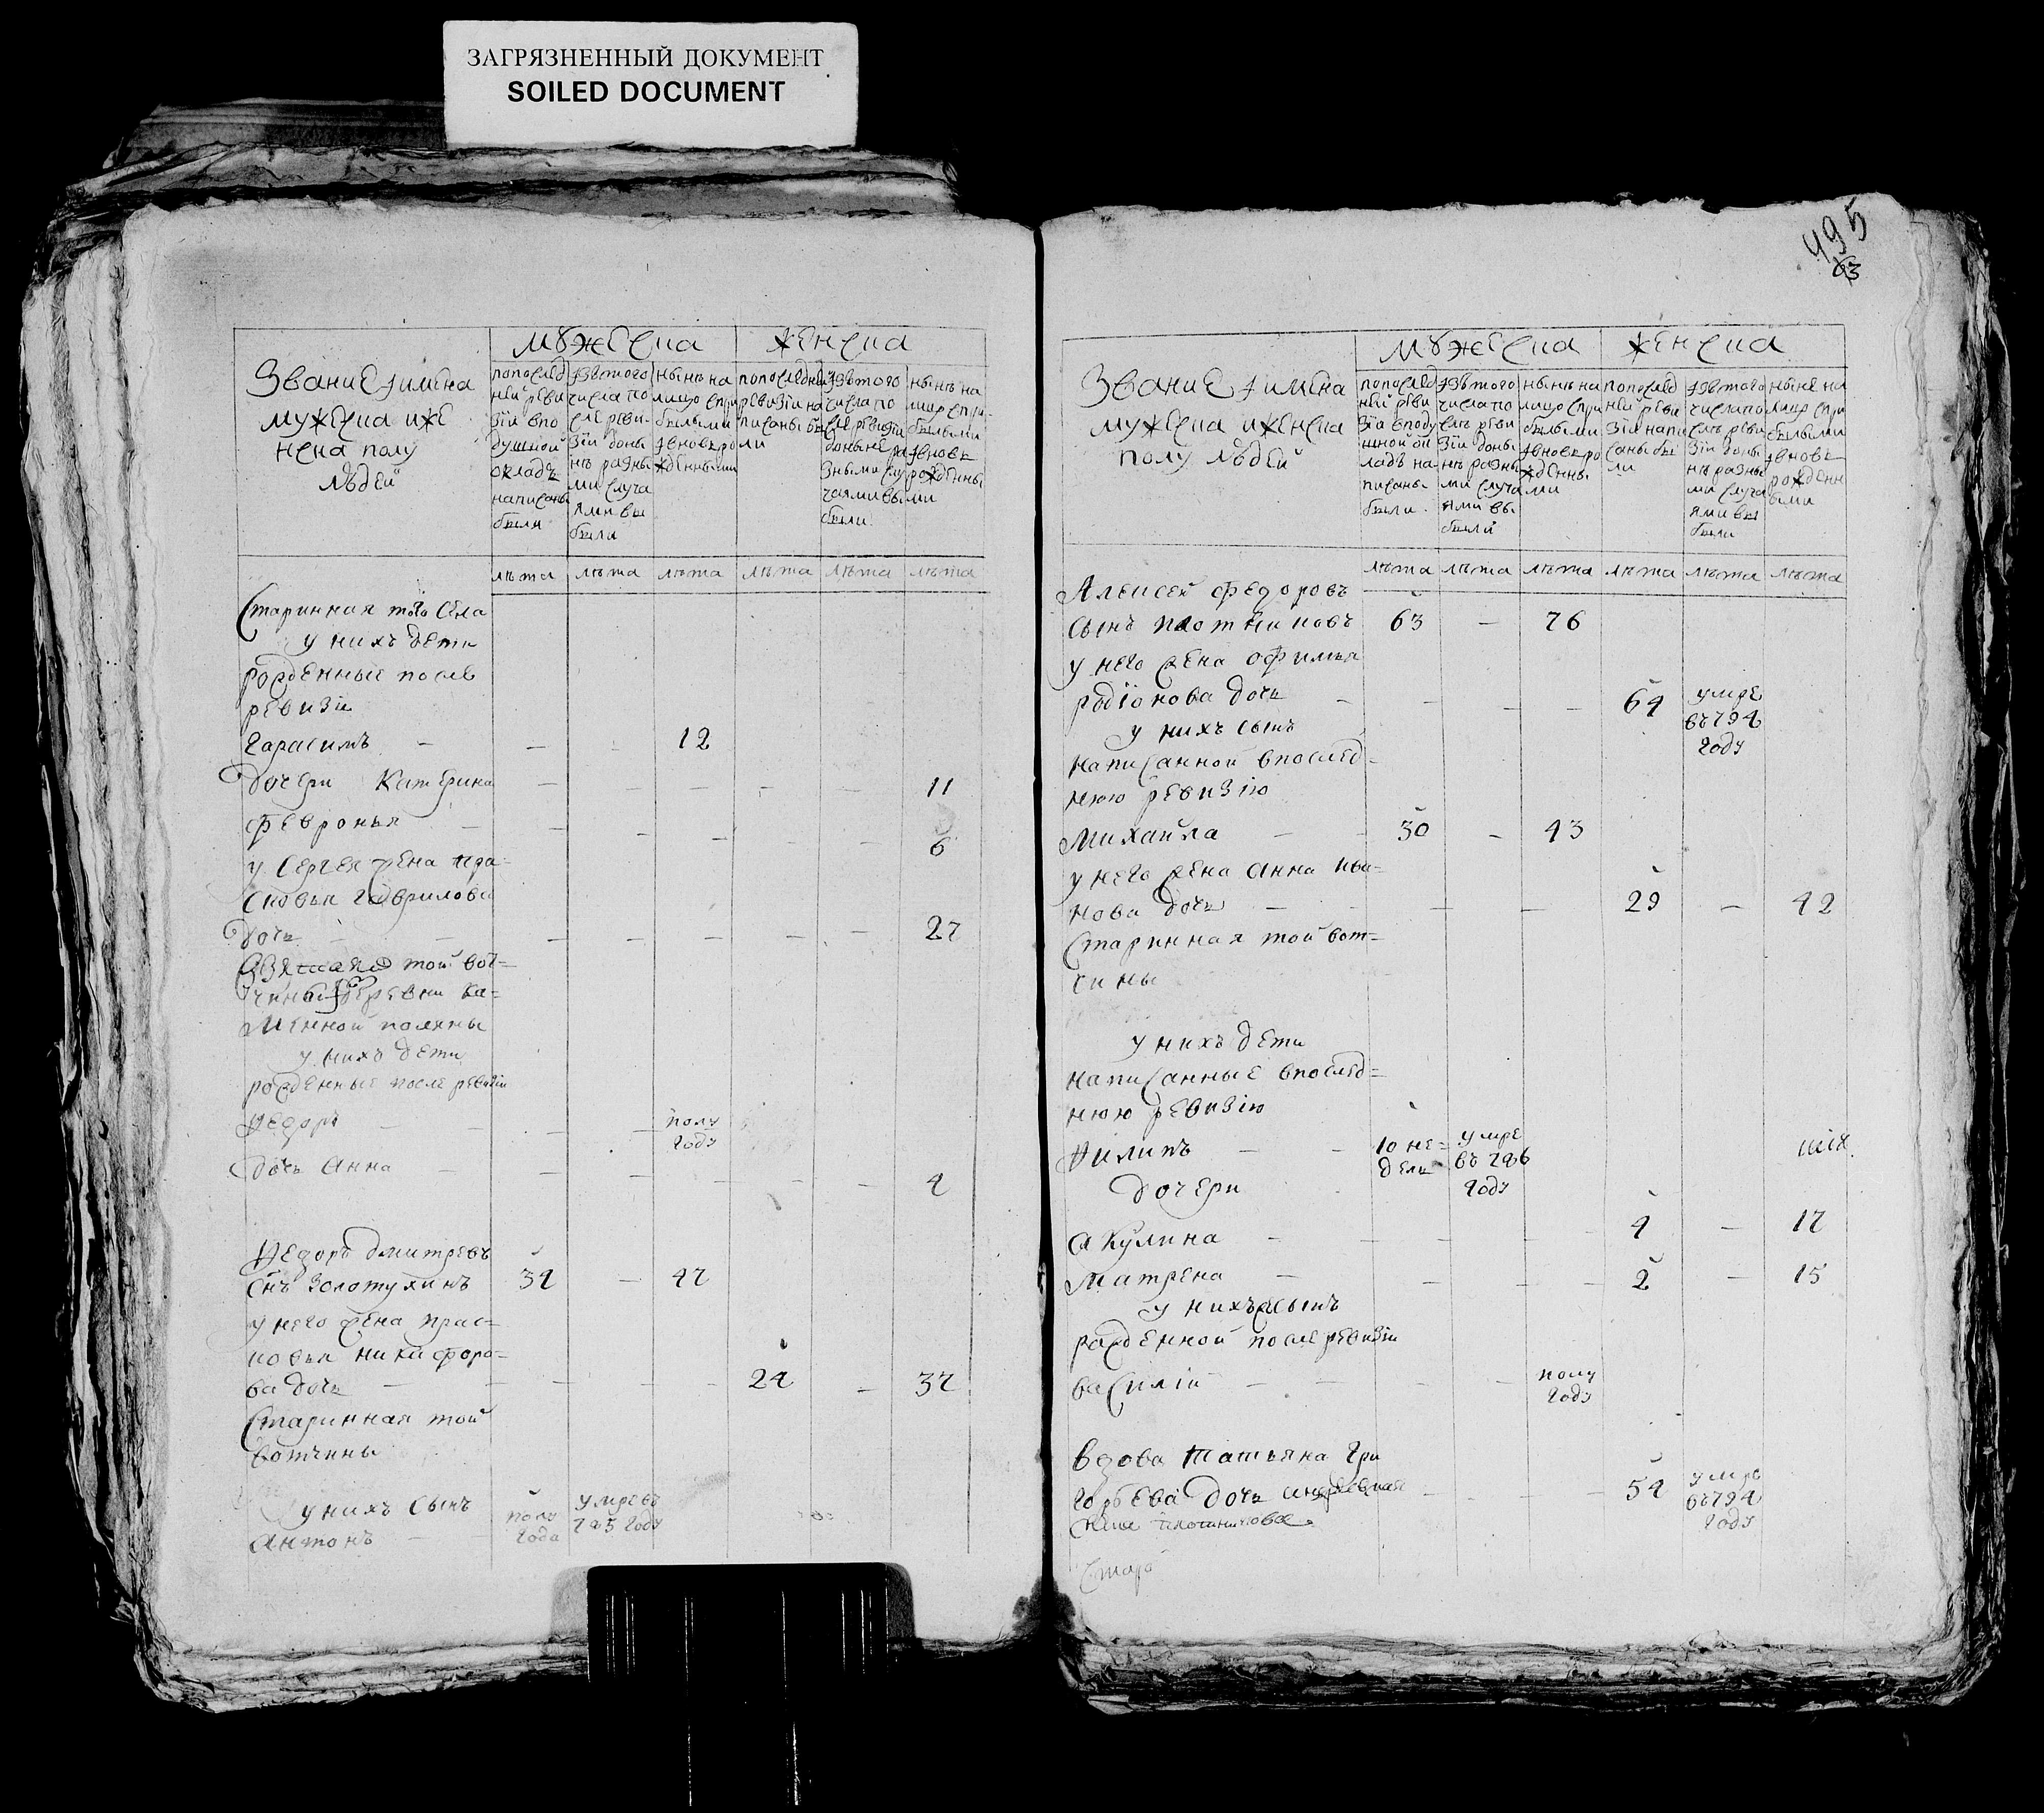 ЗАГРЯЗНЕННЫЙ ДОКУМЕНТ
SOILED DOCUMENT
мужеска женска
Звание и имена
мужеска и же
нска полу
людей
попослед
ней реви
зіи впо
душной
окладъ
написаны
были
изътого
числа по
сле реви
зіи доны
нѣ разны
ми случа
ями вы
были
нынѣ на
лицо спри
былыми
ивновь ро
жденными
попоследней
ревизіи на
писаны бы
ли
изътого
числа по
сле ревизіи
доныне ра
зными слу
чаями вы
были
нынѣ на
лицо спри
былыми
ивновь
рожденны
ми
лѣта лѣта лѣта лѣта лѣта лѣта
Старинная того села
у нихъ дети
рожденные после
ревизіи
Гарасимъ — — — 12
Дочери Катерина — — — — — 11
Февронья — — — — — — 6
у Сергея жена пра=
сковья Гаврилова
дочь — — — — — — 27
Взятая той вот=
чины деревни Ка=
менной поляны
у нихъ дети
рожденные после ревизіи
Федоръ — — — полу
году
дочь Анна — — — — — — 4
Федоръ дмитревъ
снъ Золотухинъ 34 — 47
у него жена прас=
ковья никифоро=
ва дочь — — — — 24 — 37
Старинная той
вотчины
у нихъ сынъ
Антонъ — полу
года
умре въ
795 году
495
63
мужеска женска
Звание и имена
мужеска и женска
полу людей
попослед
ней реви
зіи вподу
шной ок
ладъ на
писаны
были
изътого
числа по
слѣ реви
зіи доны
нѣ разны
ми случа
ями вы
были
нынѣ на
лицо спри
былыми
ивновь ро
жденны
ми
попослед
ней реви
зіи напи
саны бы
ли
изътого
числа по
слѣ реви
зіи доны
нѣ разны
ми случа
ями вы
были
ныне на
лицо спри
былыми
ивновь
рожденн
ыми
лѣта лѣта лѣта лѣта лѣта лѣта
Алексей федоровъ
сынъ плотниковъ 63 — 76
у него жена офимья
родіонова дочь — — — — 64 умре
въ 794
году
у нихъ сынъ
написанной впослед=
нюю ревизію
Михайла — — 30 — 43
у него жена Анна ива=
нова дочь — — — — 29 — 42
Старинная той вот=
чины
у нихъ дети
написанные впослед=
нюю ревизію
Филипъ — — 10 не=
дель
умре
въ 796
году
дочери
Акулина — — — — 4 — 17
Матрена — — — — 2 — 15
у нихъ сынъ
рожденной после ревизіи
василій — — — — полу
году
вдова Татьяна Гри
горьева дочь — — — 54 умре
въ 794
году
плотникова
Стара